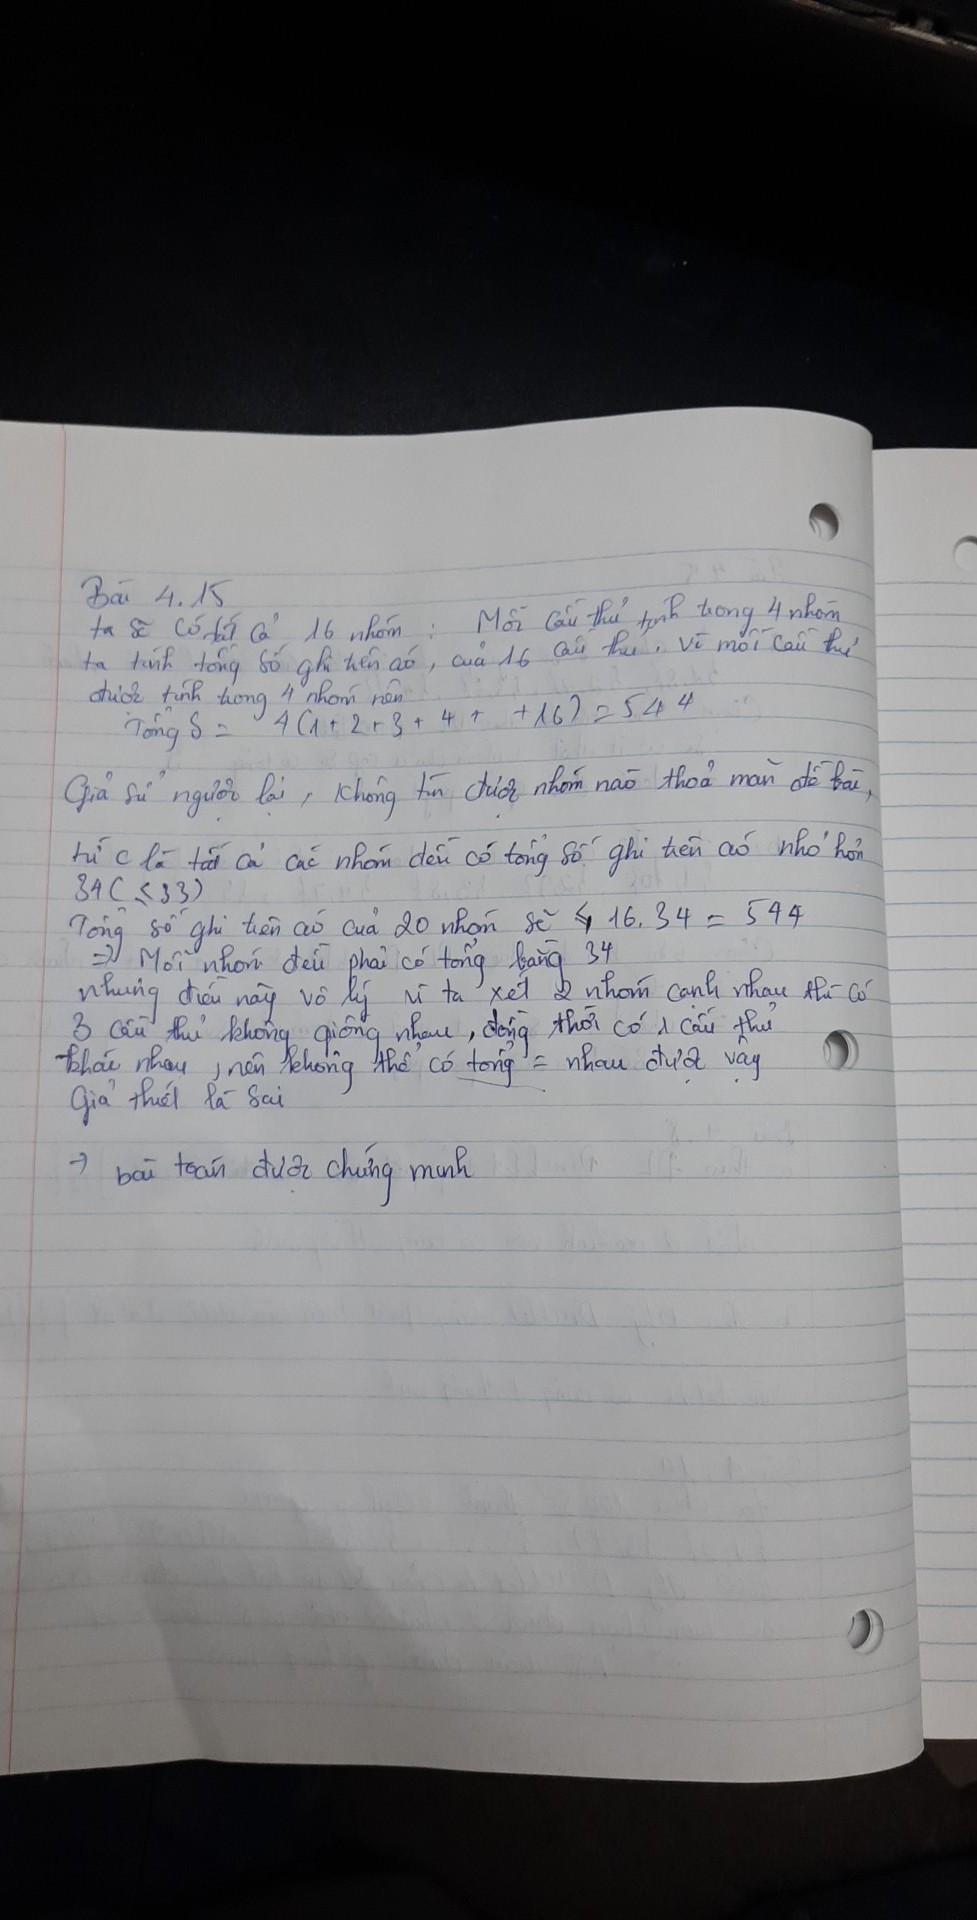 Bài 4.15
ta sẽ có tất cả 16 nhóm : Mỗi cầu thủ tính trong 4 nhóm
ta tính tổng số ghi trên áo, của 16 cầu thủ, vì mỗi cầu thủ
được tính trong 4 nhóm nên
Tổng S = 4(1+2+3+4+ +16) = 544
Giả sử ngược lại, không tìn được nhóm nào thoả mãn đề bài,
tức là tất cả các nhóm đều có tổng số ghi trên áo nhỏ hơn
34 (≤33)
Tổng số ghi trên áo của 20 nhóm sẽ ≤ 16.34 = 544
=> Mỗi nhóm đều phải có tổng bằng 34
nhưng điều này vô lý vì ta xét 2 nhóm cạnh nhau thì có
3 cầu thủ không giống nhau, đồng thời có 1 cầu thủ
khác nhau, nên không thể có tổng = nhau được vậy
Giả thuết là sai
→ bài toán được chứng minh